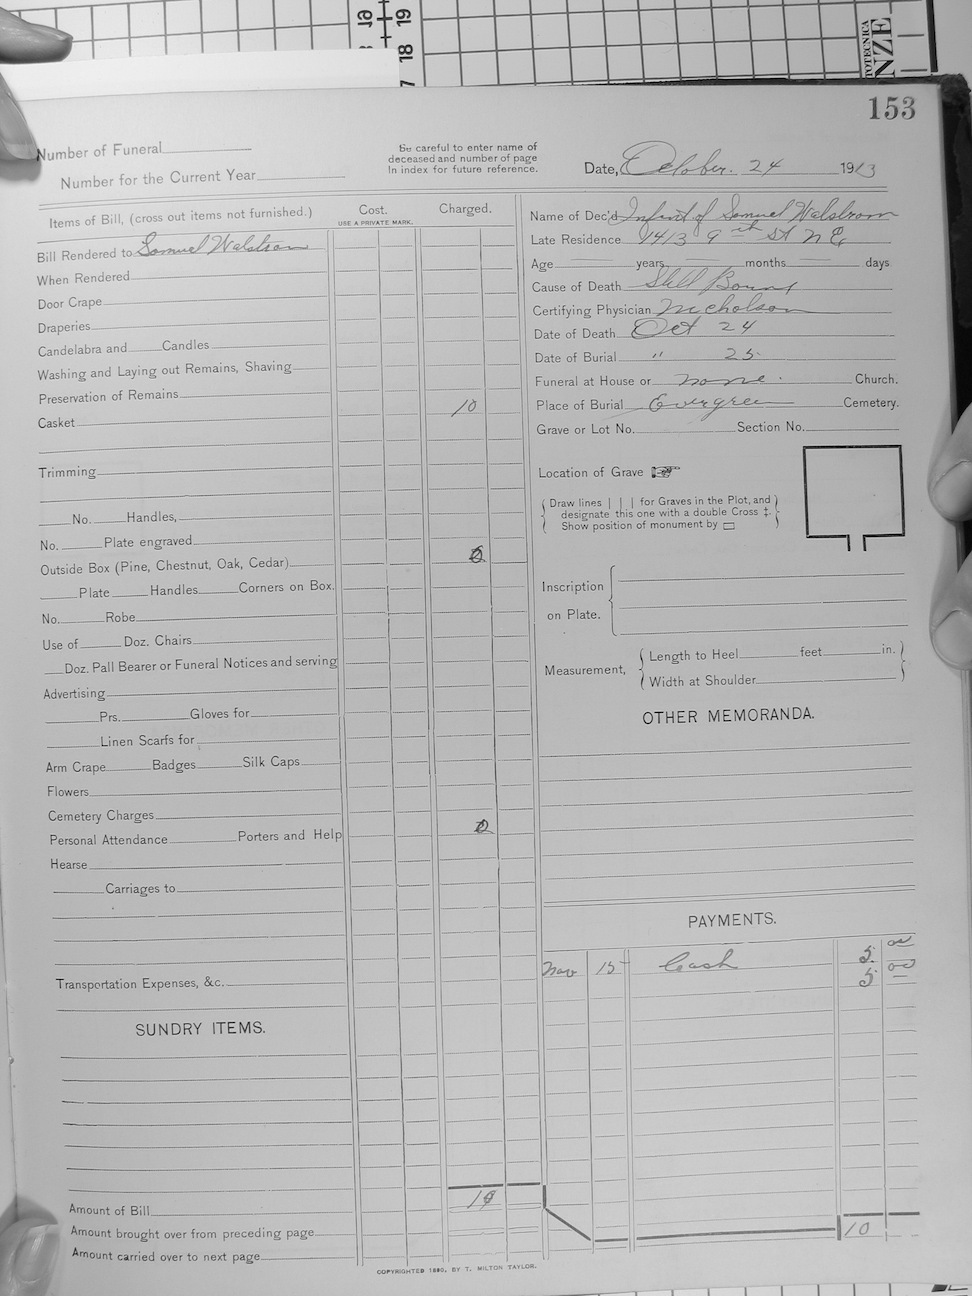 19
18
7
NZE
153
Number of Funeral
Be careful to enter name of
deceased and number of page
In index for future reference.
Number for the Current Year
Date, October. 24 1913
Items of Bill, (cross out items not furnished.)
Cost.
USE A PRIVATE MARK.
Charged.
Bill Rendered to Samuel Walstrom
When Rendered
Door Crape
Draperies
Candelabra and Candles
Washing and Laying out Remains, Shaving
Preservation of Remains
Casket 10
Trimming
No. Handles,
No. Plate engraved
Outside Box (Pine, Chestnut, Oak, Cedar)
Plate Handles Corners on Box.
No. Robe
Use of Doz. Chairs
Doz. Pall Bearer or Funeral Notices and serving
Advertising
Prs. Gloves for
Linen Scarfs for
Arm Crape Badges Silk Caps
Flowers
Cemetery Charges
Personal Attendance Porters and Help
Hearse
Carriages to
Transportation Expenses, &c.
SUNDRY ITEMS.
Amount of Bill
Amount brought over from preceding page
Amount carried over to next page
Name of Dec'd Infant of Samuel Walstrom
Late Residence 1413 9th St N E
Age years, months days
Cause of Death Still Bourn
Certifying Physician Nicholson
Date of Death Oct 24
Date of Burial " 25.
Funeral at House or none. Church.
Place of Burial Evergreen Cemetery.
Grave or Lot No. Section No.
Location of Grave
Draw lines | | | for Graves in the Plot, and
designate this one with a double Cross ‡.
Show position of monument by
Inscription
on Plate.
Measurement,
Length to Heel feet in.
Width at Shoulder
OTHER MEMORANDA.
PAYMENTS.
Nov 15 Cash 5. 00
5 00
10
COPYRIGHTED 1890, BY T. MILTON TAYLOR.